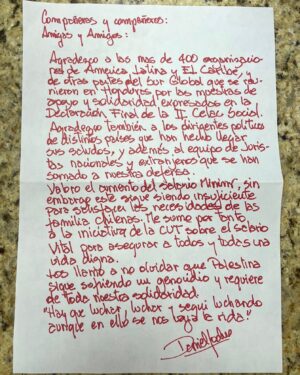 Compañeras y compañeros:
Amigas y Amigos:
Agradezco a las mas de 400 organizacio
nes de America Latina y El Caribe, y
de otras partes del Sur Global que se reu
nieron en Honduras por las muestras de
apoyo y solidaridad expresados en la
Declaración Final de la II Celac Social.
Agradezco también a los dirigentes políticos
de distintos países que nan hecho llegar
sus saludos, y además al equipo de Juris
tas nacionales y extranjeros que se han
sumado a nuestra defensa.
Valoro el aumento del salario Mínimo, sin
embargo este sigue siendo insuficiente
para satisfacer las necesidades de las
familias chilenas. Me sumo por tanto,
a la iniciativa de la CUT sobre el salario
Vital para asegurar a todos y todas una
vida digna.
Los llamo a no olvidar que Palestina
sigue sufriendo un genocidio y requiere
de toda nuestra solidaridad.
"Hay que luchar, luchar y seguir luchando
aunque en ello se nos vaya la vida."